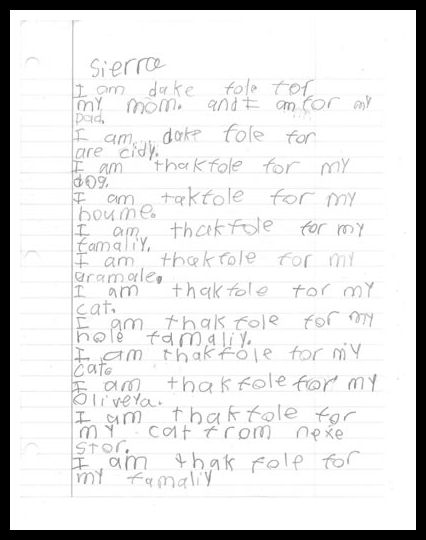 Sierra
I am dake fole tof
my mom. and I am for my
Dad.
I am dake fole for
are cidy.
I am thakfole for my
dog.
I am takfole for my
houme.
I am thakfole for my
famaliy.
I am thakfole for my
gramale.
I am thakfole for my
cat.
I am thakfole for my
hole famaliy.
I am thakfole for my
cat.
I am thakfole for my
Oliveya.
I am thakfole for
my cat from nexe
stor.
I am thak fole for
my famaliy